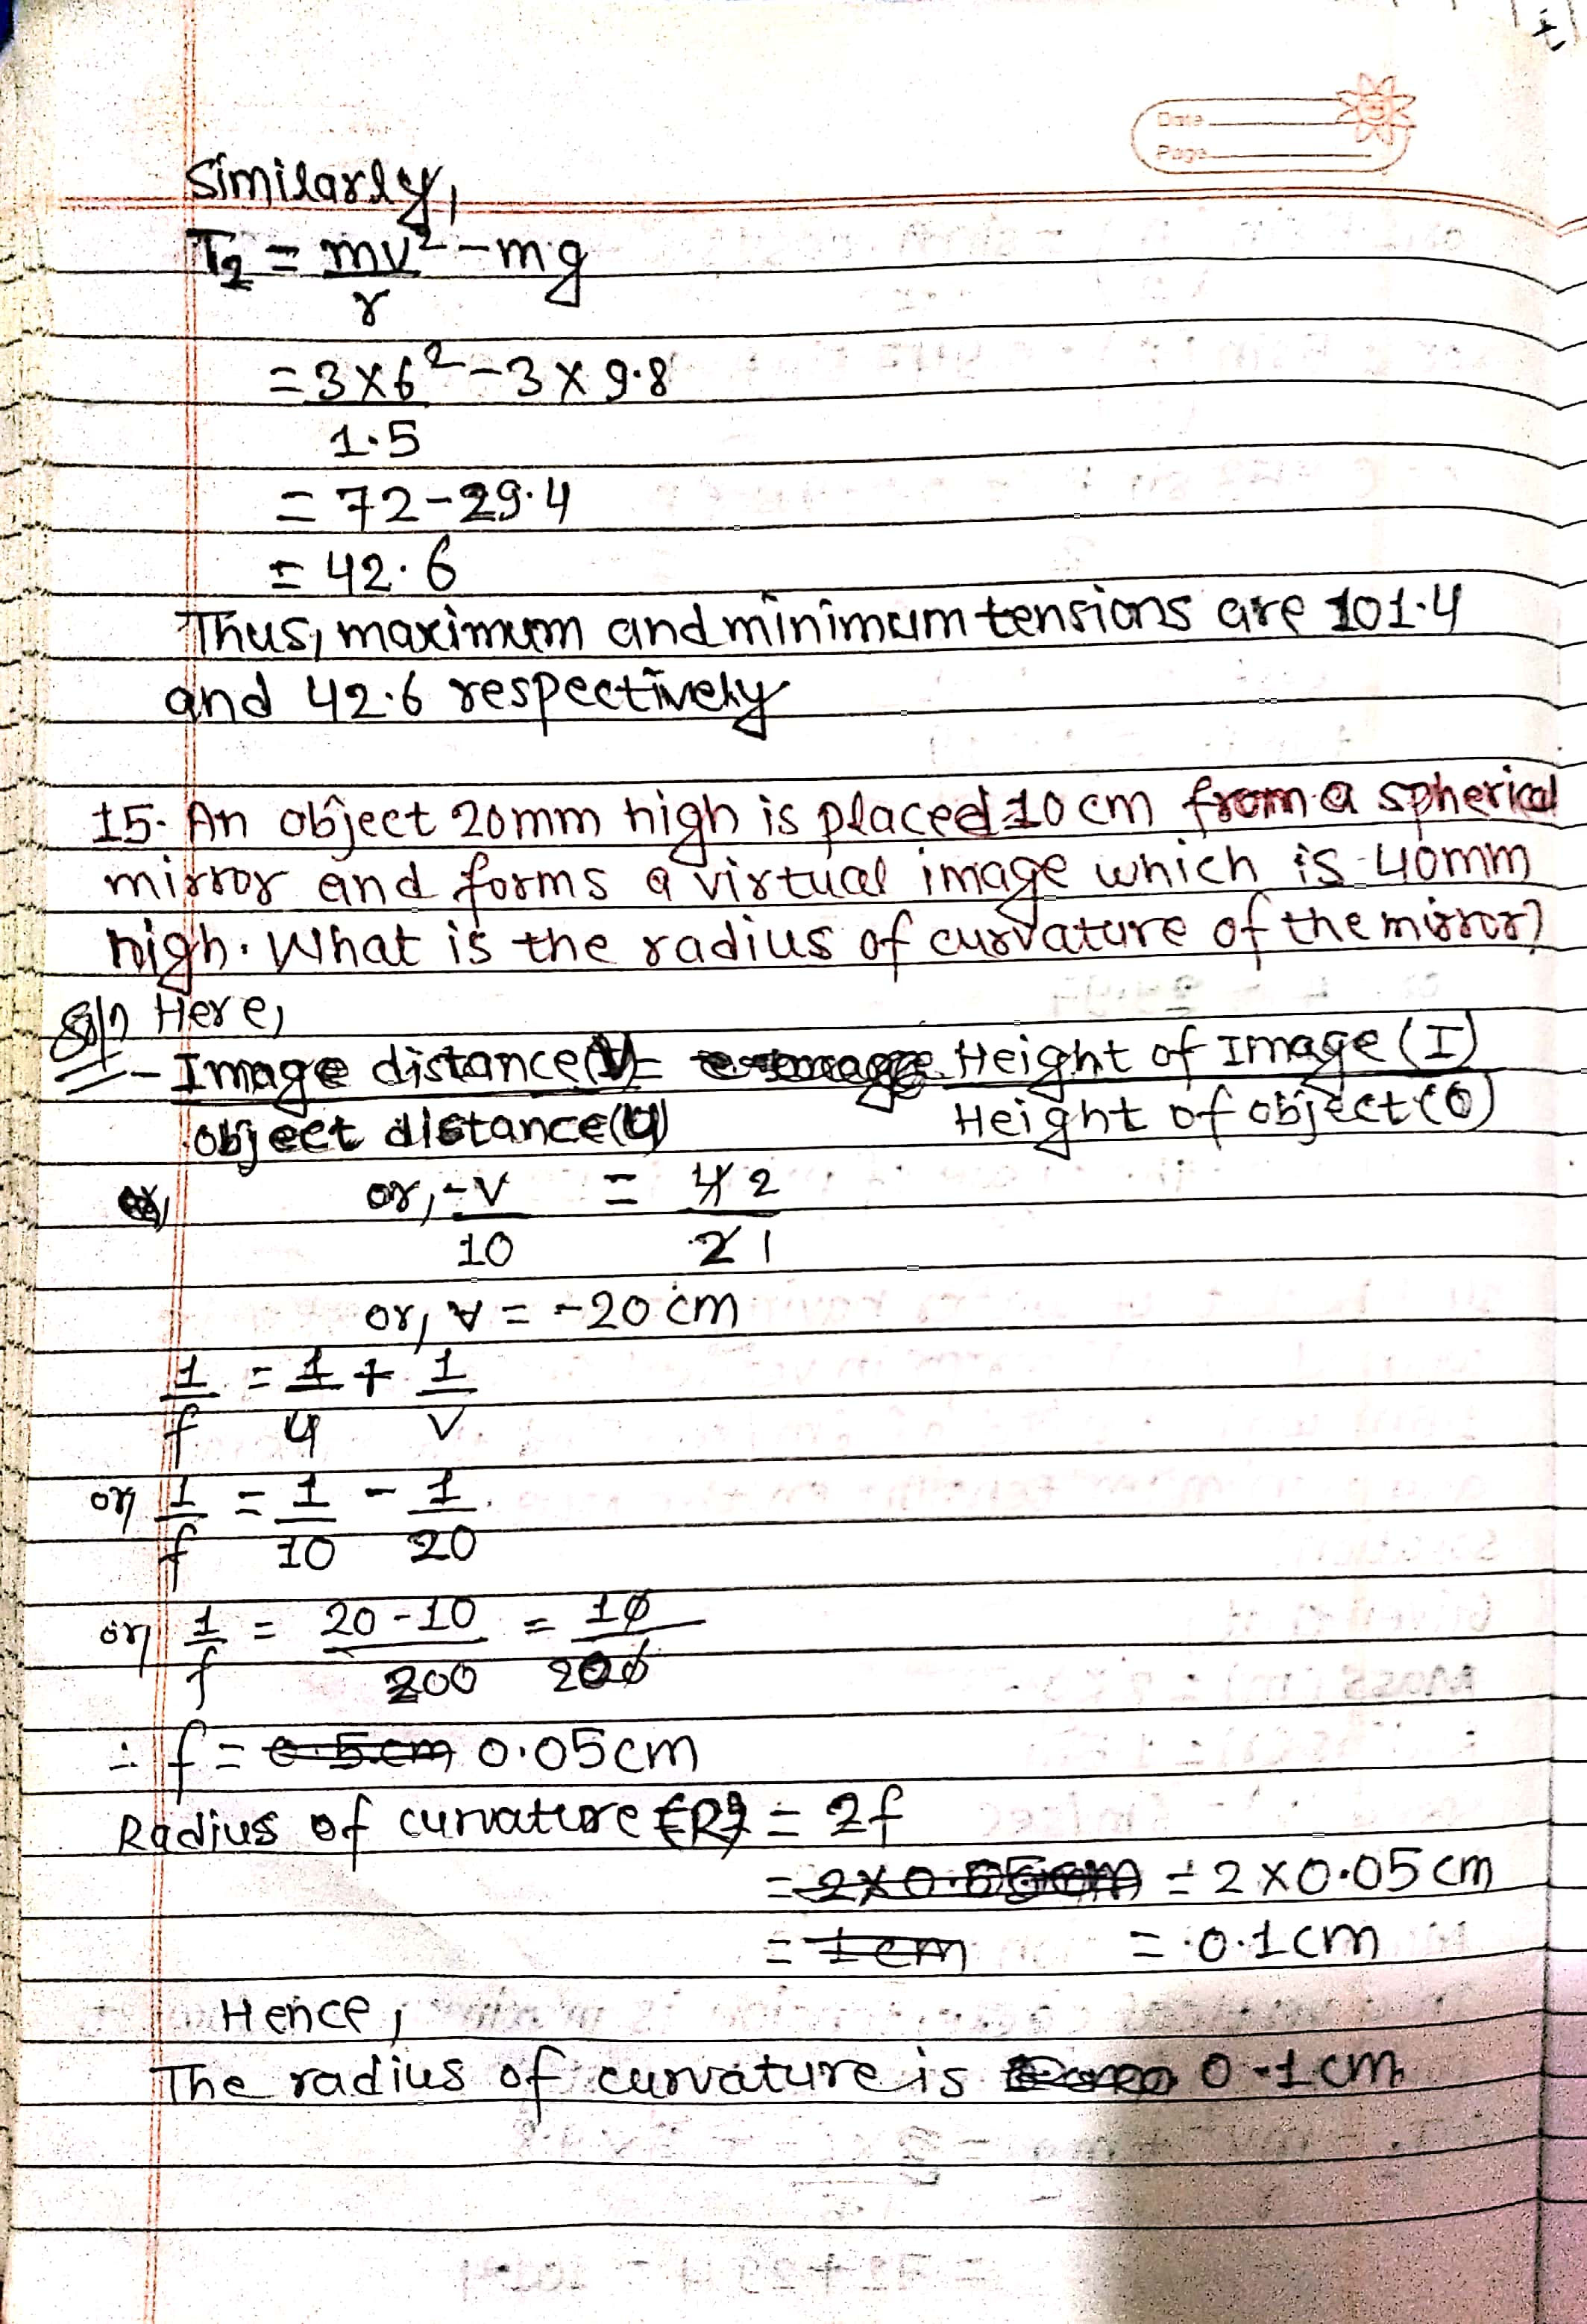 Date
Page
Similarly,
T₂ = mv² - mg
r
= 3×6² - 3×9.8
1.5
= 72-29.4
= 42.6
Thus, maximum and minimum tensions are 101.4
and 42.6 respectively
15. An object 20mm high is placed 10cm from a spherical
mirror and forms a virtual image which is 40mm
high. What is the radius of curvature of the mirror?
Solⁿ Here,
- Image distance(V) = Height of Image (I)
object distance(u) Height of object (O)
or, -v = 4 2
10 2 1
or, v = -20 cm
1 = 1 + 1
f u v
or, 1 = 1 - 1
f 10 20
or, 1 = 20-10 = 10
f 200 200
∴ f = 0.5cm 0.05cm
Radius of curvature {R} = 2f
= 2×0.05cm = 2×0.05 cm
= 1cm = 0.1cm
Hence,
The radius of curvature is 0.1cm